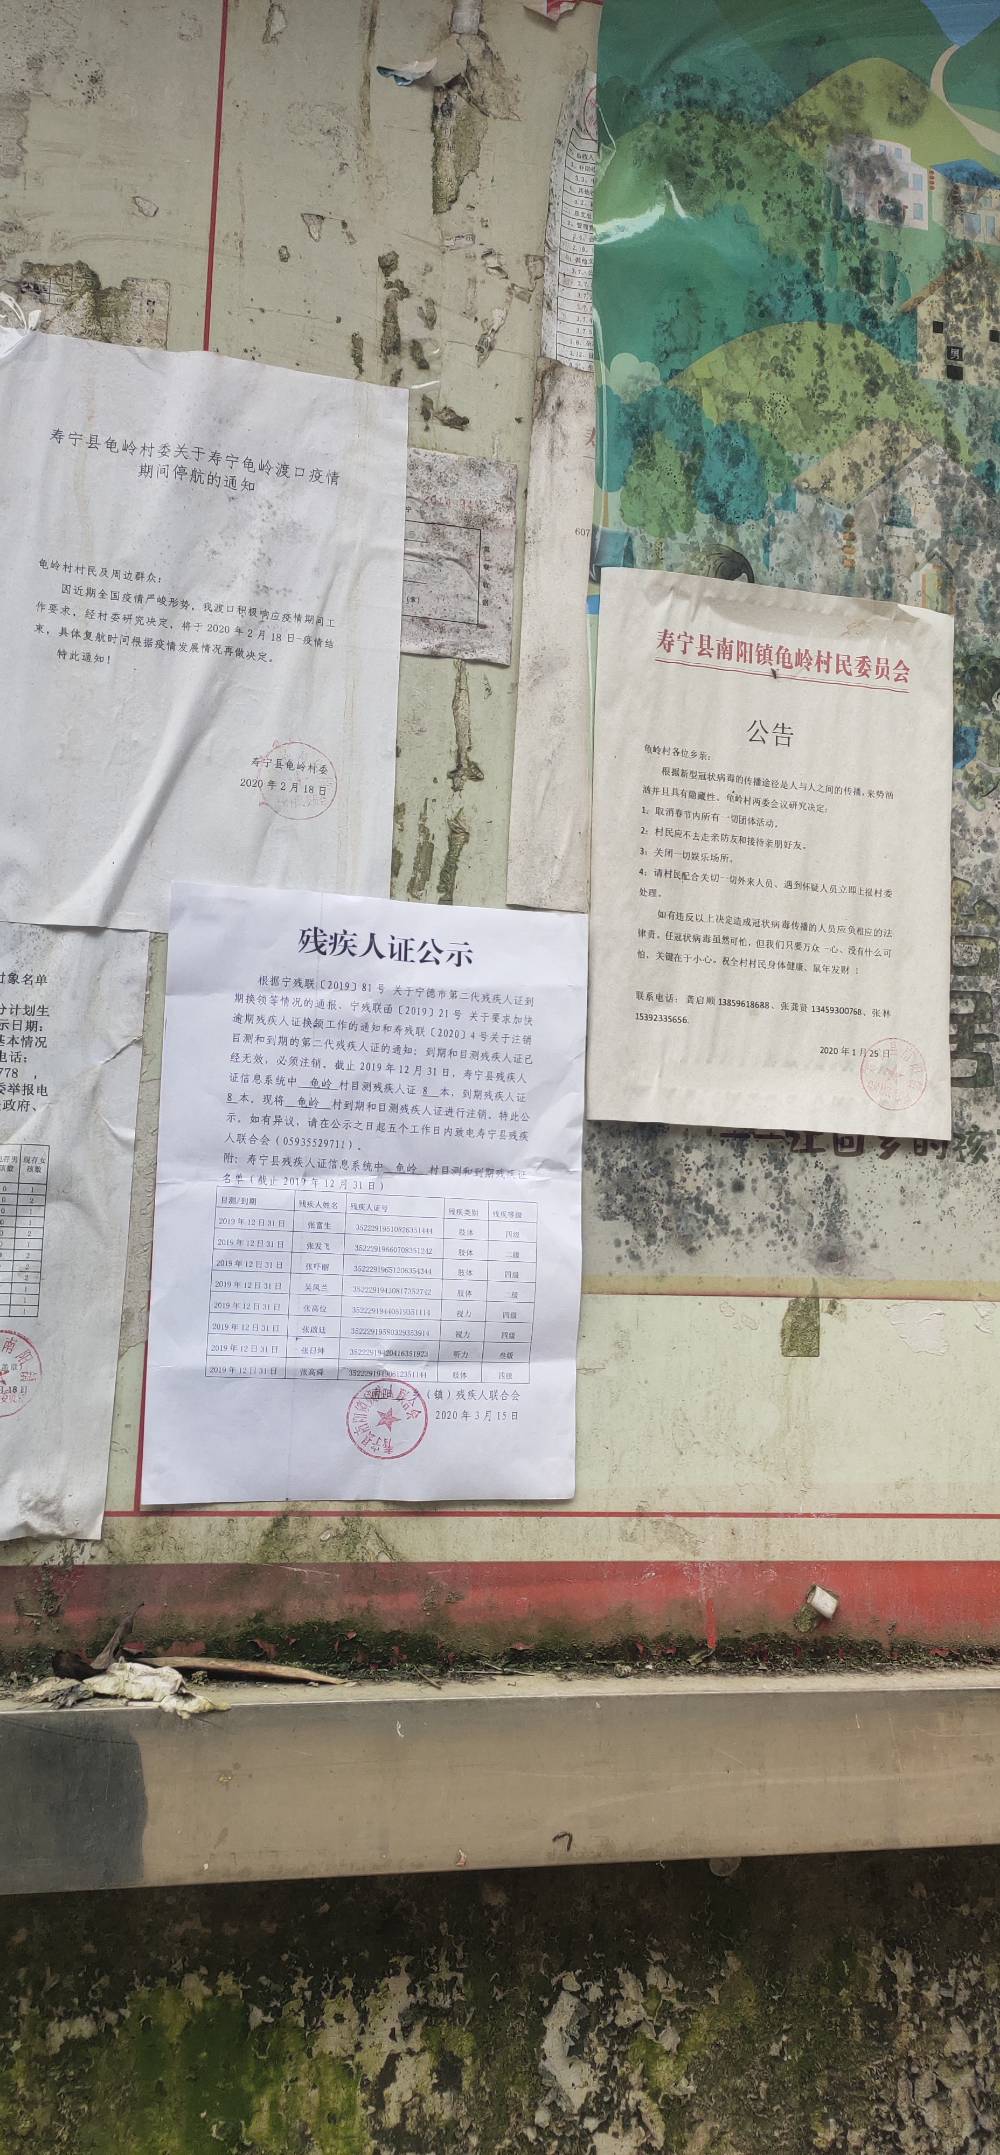 寿宁县龟岭村委关于寿宁龟岭渡口疫情
期间停航的通知
龟岭村村民及周边群众：
因近期全国疫情严峻形势，我渡口积极响应疫情期间工
作要求，经村委研究决定，将于2020年2月18日-疫情结
束，具体复航时间根据疫情发展情况再做决定。
特此通知！
寿宁县龟岭村委
2020年2月18日
寿宁县南阳镇龟岭村民委员会
公告
龟岭村各位乡亲：
根据新型冠状病毒的传播途径是人与人之间的传播，来势汹
汹并且具有隐藏性、龟岭村两委会议研究决定：
1：取消春节内所有一切团体活动。
2：村民应不去走亲防友和接待亲朋好友。
3：关闭一切娱乐场所。
4：请村民配合关切一切外来人员、遇到怀疑人员立即上报村委
处理。
如有违反以上决定造成冠状病毒传播的人员应负相应的法
律责。任冠状病毒虽然可怕，但我们只要万众一心、没有什么可
怕，关键在于小心。祝全村村民身体健康、鼠年发财！
联系电话：龚启顺 13859618688、张龚贤 13459300768、张林
15392335656.
2020年1月25日
残疾人证公示
根据宁残联〔2019〕81号 关于宁德市第二代残疾人证到
期换领等情况的通报、宁残联函〔2019〕21号 关于要求加快
逾期残疾人证换领工作的通知和寿残联〔2020〕4号关于注销
目测和到期的第二代残疾人证的通知：到期和目测残疾人证已
经无效，必须注销。截止2019年12月31日，寿宁县残疾人
证信息系统中 龟岭 村目测残疾人证 8 本，到期残疾人证
8 本，现将 龟岭 村到期和目测残疾人证进行注销。特此公
示，如有异议，请在公示之日起五个工作日内致电寿宁县残疾
人联合会（05935529711）。
附：寿宁县残疾人证信息系统中 龟岭 村目测和到期残疾证
名单（截止2019年12月31日）
目测/到期 残疾人姓名 残疾人证号 残疾类别 残疾等级
2019年12月31日 张富生 35222919510826351444 肢体 四级
2019年12月31日 张发飞 35222919660708351242 肢体 二级
2019年12月31日 张吓丽 35222919651206354344 肢体 四级
2019年12月31日 吴凤兰 35222919430817352742 肢体 二级
2019年12月31日 张高位 35222919440519351114 视力 四级
2019年12月31日 张啟廷 35222919580329353914 视力 四级
2019年12月31日 张日坤 35222919420416351923 听力 叁级
2019年12月31日 张高舜 35222919490612351144 肢体 四级
南阳 乡（镇）残疾人联合会
2020年3月15日
对象名单
分计划生
示日期：
基本情况
电话：
778，
委举报电
政府、
现存女
孩数
607
男
让回乡的孩